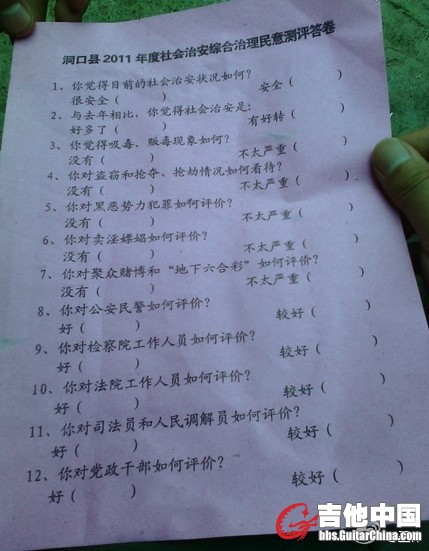 洞口县2011年度社会治安综合治理民意测评答卷
1、你觉得目前的社会治安状况如何?
很安全（ ） 安全（ ）
2、与去年相比，你觉得社会治安是:
好多了（ ） 有好转（ ）
3、你觉得吸毒、贩毒现象如何?
没有（ ） 不太严重（ ）
4、你对盗窃和抢夺、抢劫情况如何看待?
没有（ ） 不太严重（ ）
5、你对黑恶势力犯罪如何评价?
没有（ ） 不太严重（ ）
6、你对卖淫嫖娼如何评价?
没有（ ） 不太严重（ ）
7、你对聚众赌博和“地下六合彩”如何评价?
没有（ ） 不太严重（ ）
8、你对公安民警如何评价?
好（ ） 较好（ ）
9、你对检察院工作人员如何评价?
好（ ） 较好（ ）
10、你对法院工作人员如何评价?
好（ ） 较好（ ）
11、你对司法员和人民调解员如何评价?
好（ ） 较好（ ）
12、你对党政干部如何评价?
好（ ） 较好（ ）
吉他中国
bbs.GuitarChina.com